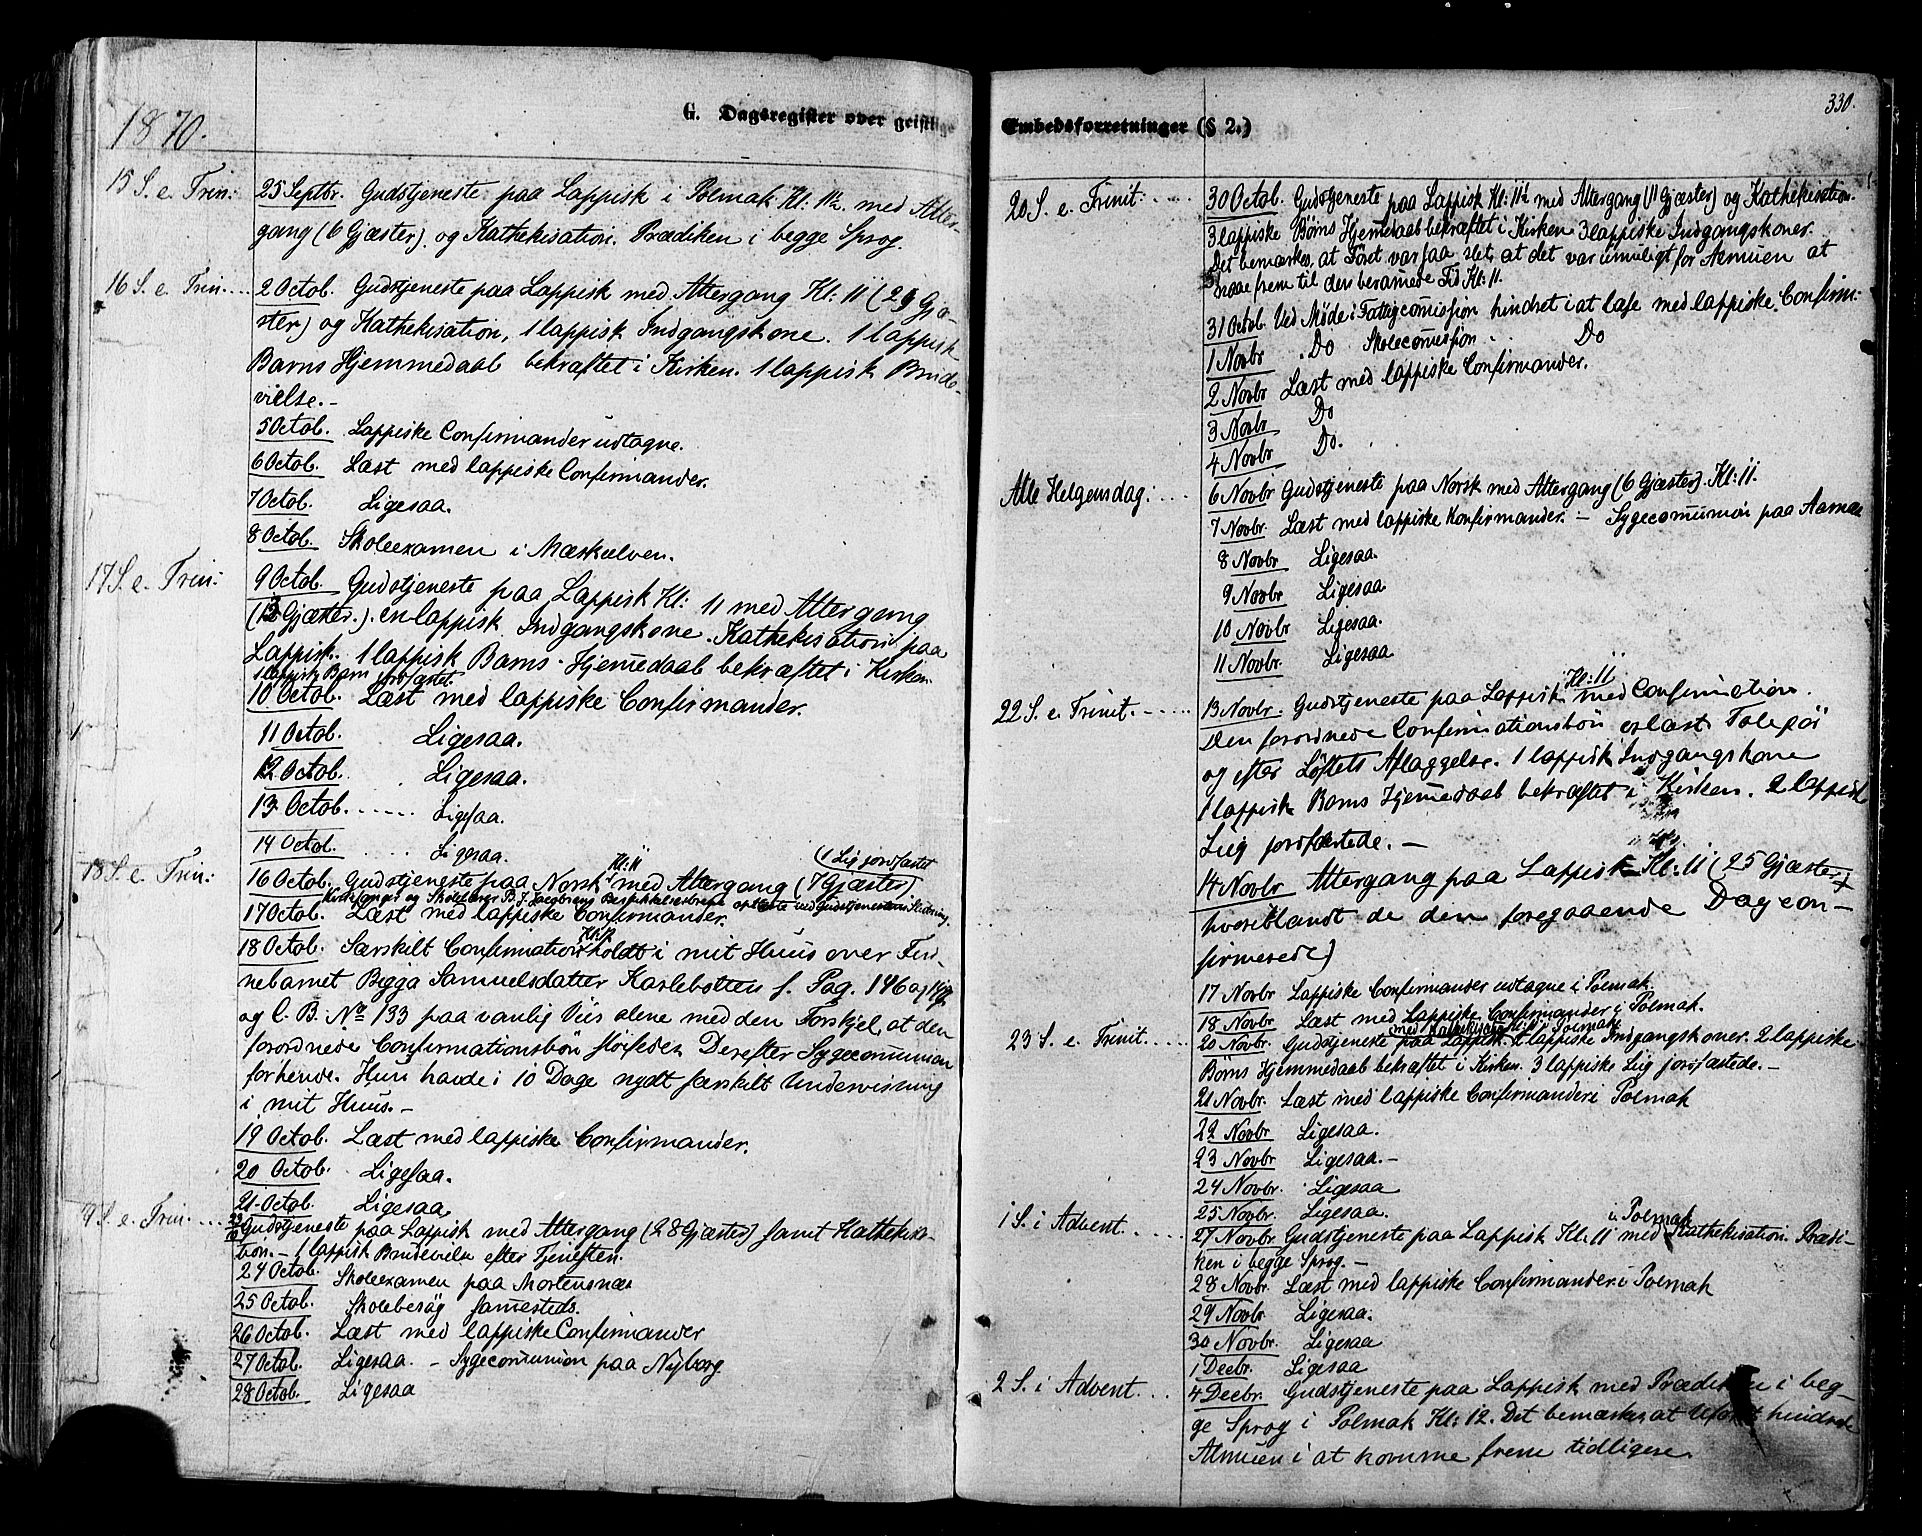 1870.
G. Dagsregister over geistlige
15 S. e. Trin: 25 Septbr. Gudstjeneste paa Lappisk i Polmak Kl: 11½ med Alter-
gang (6 Gjæster) og Kathekisation. Prædiken i begge Sprog.
16 S. e. Trin.... 2 Octob. Gudstjeneste paa Lappisk med Altergang Kl: 11 (29 Gjæ-
ster) og Kathekisation, 1 lappisk Indgangskone. 1 lappisk
Barns Hjemmedaab bekræftet i Kirken. 1 lappisk Brude-
vielse. -
5 Octob. Lappiske Confirmander udtagne.
6 Octob. Læst med lappiske Confirmander.
7 Octob. Ligesaa.
8 Octob. Skoleexamen i Mæskelven.
17 S. e. Trin: 9 Octob. Gudstjeneste paa Lappisk Kl: 11 med Altergang
(13 Gjæster.). en lappisk Indgangskone. Kathekisation paa
Lappisk. 1 lappisk Barns Hjemedaab bekræftet i Kirken.
1 lappisk Barn jordfæstet.
10 Octob. Læst med lappiske Confirmander.
11 Octob. Ligesaa.
12 Octob. Ligesaa.
13 Octob. ..... Ligesaa.
14 Octob. Ligesaa.
Kl: 11 (1 Lig jordfæstet
18 S. e. Trin: 16 Octob. Gudstjeneste paa Norsk med Altergang (7 Gjæster)
Kirkesanger og Skolelærer B. J. Jacobsens Beskikkelsesbrev oplæste ved Gudstjenestens Slutning.
17 Octob. Læst med lappiske Confirmander.
18 Octob. Særskilt Confirmation holdt i mit Huus over Fin-
nebarnet Bigga Samuelsdatter Karlebotten s. Pag. 146 og 147
og C. B. No 133 paa vanlig Viis alene med den Forskjel, at den
forordnede Confirmationsbøn sløifedes. Derefter Sygecommunion
for hende. Hun havde i 10 Dage nydt særskilt Underviisning
i mit Huus. -
19 Octob. Læst med lappiske Confirmander.
20 Octob. Ligesaa.
21 Octob. Ligesaa
9 S. e. Trin.... Gudstjeneste paa Lappisk med Altergang (28 Gjæster) samt Kathekisa-
tion. - 1 lappisk Brudevielse efter Tjenesten.
24 Octob. Skoleexamen paa Mortensnæs
25 Octob. Skolebesøg samesteds.
26 Octob. Læst med lappiske Confirmander
27 Octob. Ligesaa. - Sygecommunion paa Nyborg.
28 Octob. Ligesaa
330.
Embedsforretninger (§ 2.)
20 S. e. Trinit..... 30 Octob. Gudstjeneste paa Lappisk Kl: 11½ med Altergang (11 Gjæster) og Kathekisation.
3 lappiske Børns Hjemedaab bekræftet i Kirken 3 lappiske Indgangskoner.
Det bemærkes, at Föret var saa slet, at det var umuligt for Almuen at
naae frem til den beramede Tid Kl: 11.
31 Octob. Ved Møde i Fattigcomission hindret i at læse med lappiske Confirm:
1 Novbr Do Skolecomission Do
2 Novbr Læst med lappiske Confirmander.
3 Novbr Do
4 Novbr Do.
Alle Helgensdag: .... 6 Novbr Gudstjeneste paa Norsk med Altergang (6 Gjæster). Kl: 11.
7 Novbr. Læst med lappiske Konfirmander. - Sygecommunion paa
8 Novbr Ligesaa.
9 Novbr Ligesaa
10 Novbr Ligesaa.
11 Novbr. Ligesaa
Kl: 11
22 S. e. Trinit. - .... 13 Novbr. Gudstjeneste paa Lappisk med Confirmation.
Den forordnede Confirmationsbøn oplæst
og efter Løftets Aflæggelse. 1 lappisk Indgangskone
1 lappisk Barns Hjemedaab bekræftet i Kirken. 2 lappisk
Liig jordfæstede. -
14 Novbr Altergang paa Lappisk Kl: 11 (25 Gjæster,
hvoriblandt de den foregaaende Dag con-
firmerede)
17 Novbr Lappiske Confirmander udtagne i Polmak.
18 Novbr. Læst med Lappiske Confirmander i Polmak.
23 S. e. Trinit. .... 20 Novbr. Gudstjeneste paa Lappisk. lappiske Indgangskoner. 2 lappiske
Børns Hjemmedaab bekræftet i Kirken. 3 lappiske Liig jordfæstede. -
21 Novbr. Læst med lappiske Confirmander i Polmak
22 Novbr Ligesaa.
23 Novbr Ligesaa. -
24 Novbr. Ligesaa
25 Novbr. Ligesaa.
i Polmak
1 S. i Advent. .... 27 Novbr Gudstjeneste paa Lappisk Kl: 11 med Kathekisation. Prædi-
ken i begge Sprog. -
28 Novbr. Læst med lappiske Confirmander i Polmak
29 Novbr Ligesaa.
30 Novbr. Ligesaa
1 Decbr. Ligesaa
2 S. i Advent. ... 4 Decbr. Gudstjeneste paa Lappisk med Prædiken i beg-
ge Sprog i Polmak Kl: 12. Det bemærkes, at Uføret hindrede
Almuen i at komme frem tidligere.